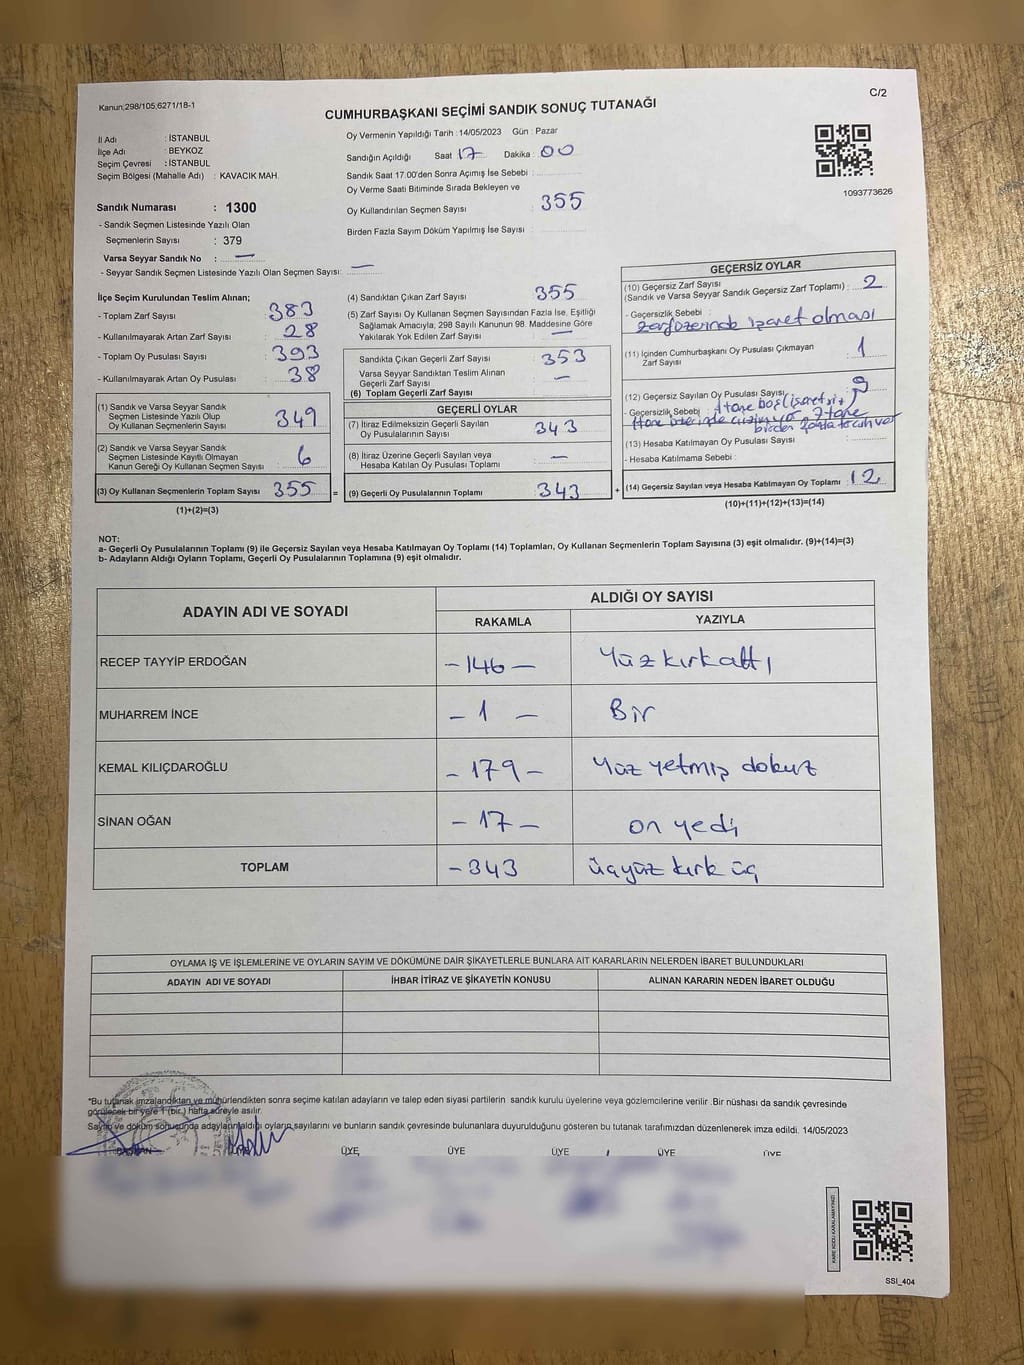 Kanun;298/105;6271/18-1
C/2
CUMHURBAŞKANI SEÇİMİ SANDIK SONUÇ TUTANAĞI
İl Adı : İSTANBUL
İlçe Adı : BEYKOZ
Seçim Çevresi : İSTANBUL
Seçim Bölgesi (Mahalle Adı) : KAVACIK MAH.
Oy Vermenin Yapıldığı Tarih : 14/05/2023 Gün : Pazar
Sandığın Açıldığı Saat 17 Dakika : 00
Sandık Saat 17.00'den Sonra Açımış İse Sebebi :
Oy Verme Saati Bitiminde Sırada Bekleyen ve
Oy Kullandırılan Seçmen Sayısı : 355
Birden Fazla Sayım Döküm Yapılmış İse Sayısı :
1093773626
Sandık Numarası : 1300
- Sandık Seçmen Listesinde Yazılı Olan
Seçmenlerin Sayısı : 379
Varsa Seyyar Sandık No : —
- Seyyar Sandık Seçmen Listesinde Yazılı Olan Seçmen Sayısı: —
İlçe Seçim Kurulundan Teslim Alınan;
- Toplam Zarf Sayısı : 383
- Kullanılmayarak Artan Zarf Sayısı : 28
- Toplam Oy Pusulası Sayısı : 393
- Kullanılmayarak Artan Oy Pusulası : 38
(1) Sandık ve Varsa Seyyar Sandık
Seçmen Listesinde Yazılı Olup
Oy Kullanan Seçmenlerin Sayısı : 349
(2) Sandık ve Varsa Seyyar Sandık
Seçmen Listesinde Kayıtlı Olmayan
Kanun Gereği Oy Kullanan Seçmen Sayısı : 6
(3) Oy Kullanan Seçmenlerin Toplam Sayısı : 355
(1)+(2)=(3)
(4) Sandıktan Çıkan Zarf Sayısı : 355
(5) Zarf Sayısı Oy Kullanan Seçmen Sayısından Fazla İse, Eşitliği
Sağlamak Amacıyla, 298 Sayılı Kanunun 98. Maddesine Göre
Yakılarak Yok Edilen Zarf Sayısı : —
Sandıkta Çıkan Geçerli Zarf Sayısı : 353
Varsa Seyyar Sandıktan Teslim Alınan
Geçerli Zarf Sayısı : —
(6) Toplam Geçerli Zarf Sayısı :
GEÇERLİ OYLAR
(7) İtiraz Edilmeksizin Geçerli Sayılan
Oy Pusulalarının Sayısı : 343
(8) İtiraz Üzerine Geçerli Sayılan veya
Hesaba Katılan Oy Pusulası Toplamı : —
(9) Geçerli Oy Pusulalarının Toplamı : 343
GEÇERSİZ OYLAR
(10) Geçersiz Zarf Sayısı
(Sandık ve Varsa Seyyar Sandık Geçersiz Zarf Toplamı) : 2
- Geçersizlik Sebebi :
zarf üzerinde işaret olması
(11) İçinden Cumhurbaşkanı Oy Pusulası Çıkmayan
Zarf Sayısı : 1
(12) Geçersiz Sayılan Oy Pusulası Sayısı : 9
Geçersizlik Sebebi : 1 tane boş (işaretsiz)
1 tane üzerinde çizim var 7 tane
birden fazla tercih var
(13) Hesaba Katılmayan Oy Pusulası Sayısı :
- Hesaba Katılmama Sebebi :
(14) Geçersiz Sayılan veya Hesaba Katılmayan Oy Toplamı : 12
(10)+(11)+(12)+(13)=(14)
NOT:
a- Geçerli Oy Pusulalarının Toplamı (9) ile Geçersiz Sayılan veya Hesaba Katılmayan Oy Toplamı (14) Toplamları, Oy Kullanan Seçmenlerin Toplam Sayısına (3) eşit olmalıdır. (9)+(14)=(3)
b- Adayların Aldığı Oyların Toplamı, Geçerli Oy Pusulalarının Toplamına (9) eşit olmalıdır.
ADAYIN ADI VE SOYADI
ALDIĞI OY SAYISI
RAKAMLA YAZIYLA
RECEP TAYYİP ERDOĞAN - 146 — Yüz kırk altı
MUHARREM İNCE - 1 — Bir
KEMAL KILIÇDAROĞLU - 179 - Yüz yetmiş dokuz
SİNAN OĞAN - 17 - on yedi
TOPLAM - 343 üçyüz kırk üç
OYLAMA İŞ VE İŞLEMLERİNE VE OYLARIN SAYIM VE DÖKÜMÜNE DAİR ŞİKAYETLERLE BUNLARA AİT KARARLARIN NELERDEN İBARET BULUNDUKLARI
ADAYIN ADI VE SOYADI İHBAR İTİRAZ VE ŞİKAYETİN KONUSU ALINAN KARARIN NEDEN İBARET OLDUĞU
*Bu tutanak imzalandıktan ve mühürlendikten sonra seçime katılan adayların ve talep eden siyasi partilerin sandık kurulu üyelerine veya gözlemcilerine verilir .Bir nüshası da sandık çevresinde
görülecek bir yere 1 (bir ) hafta süreyle asılır.
Sayım ve döküm sonucunda adayların aldığı oyların sayılarını ve bunların sandık çevresinde bulunanlara duyurulduğunu gösteren bu tutanak tarafımızdan düzenlenerek imza edildi. 14/05/2023
BAŞKAN ÜYE ÜYE ÜYE ÜYE ÜYE
KARE KODU KARALAMAYINIZ!
SSI_404